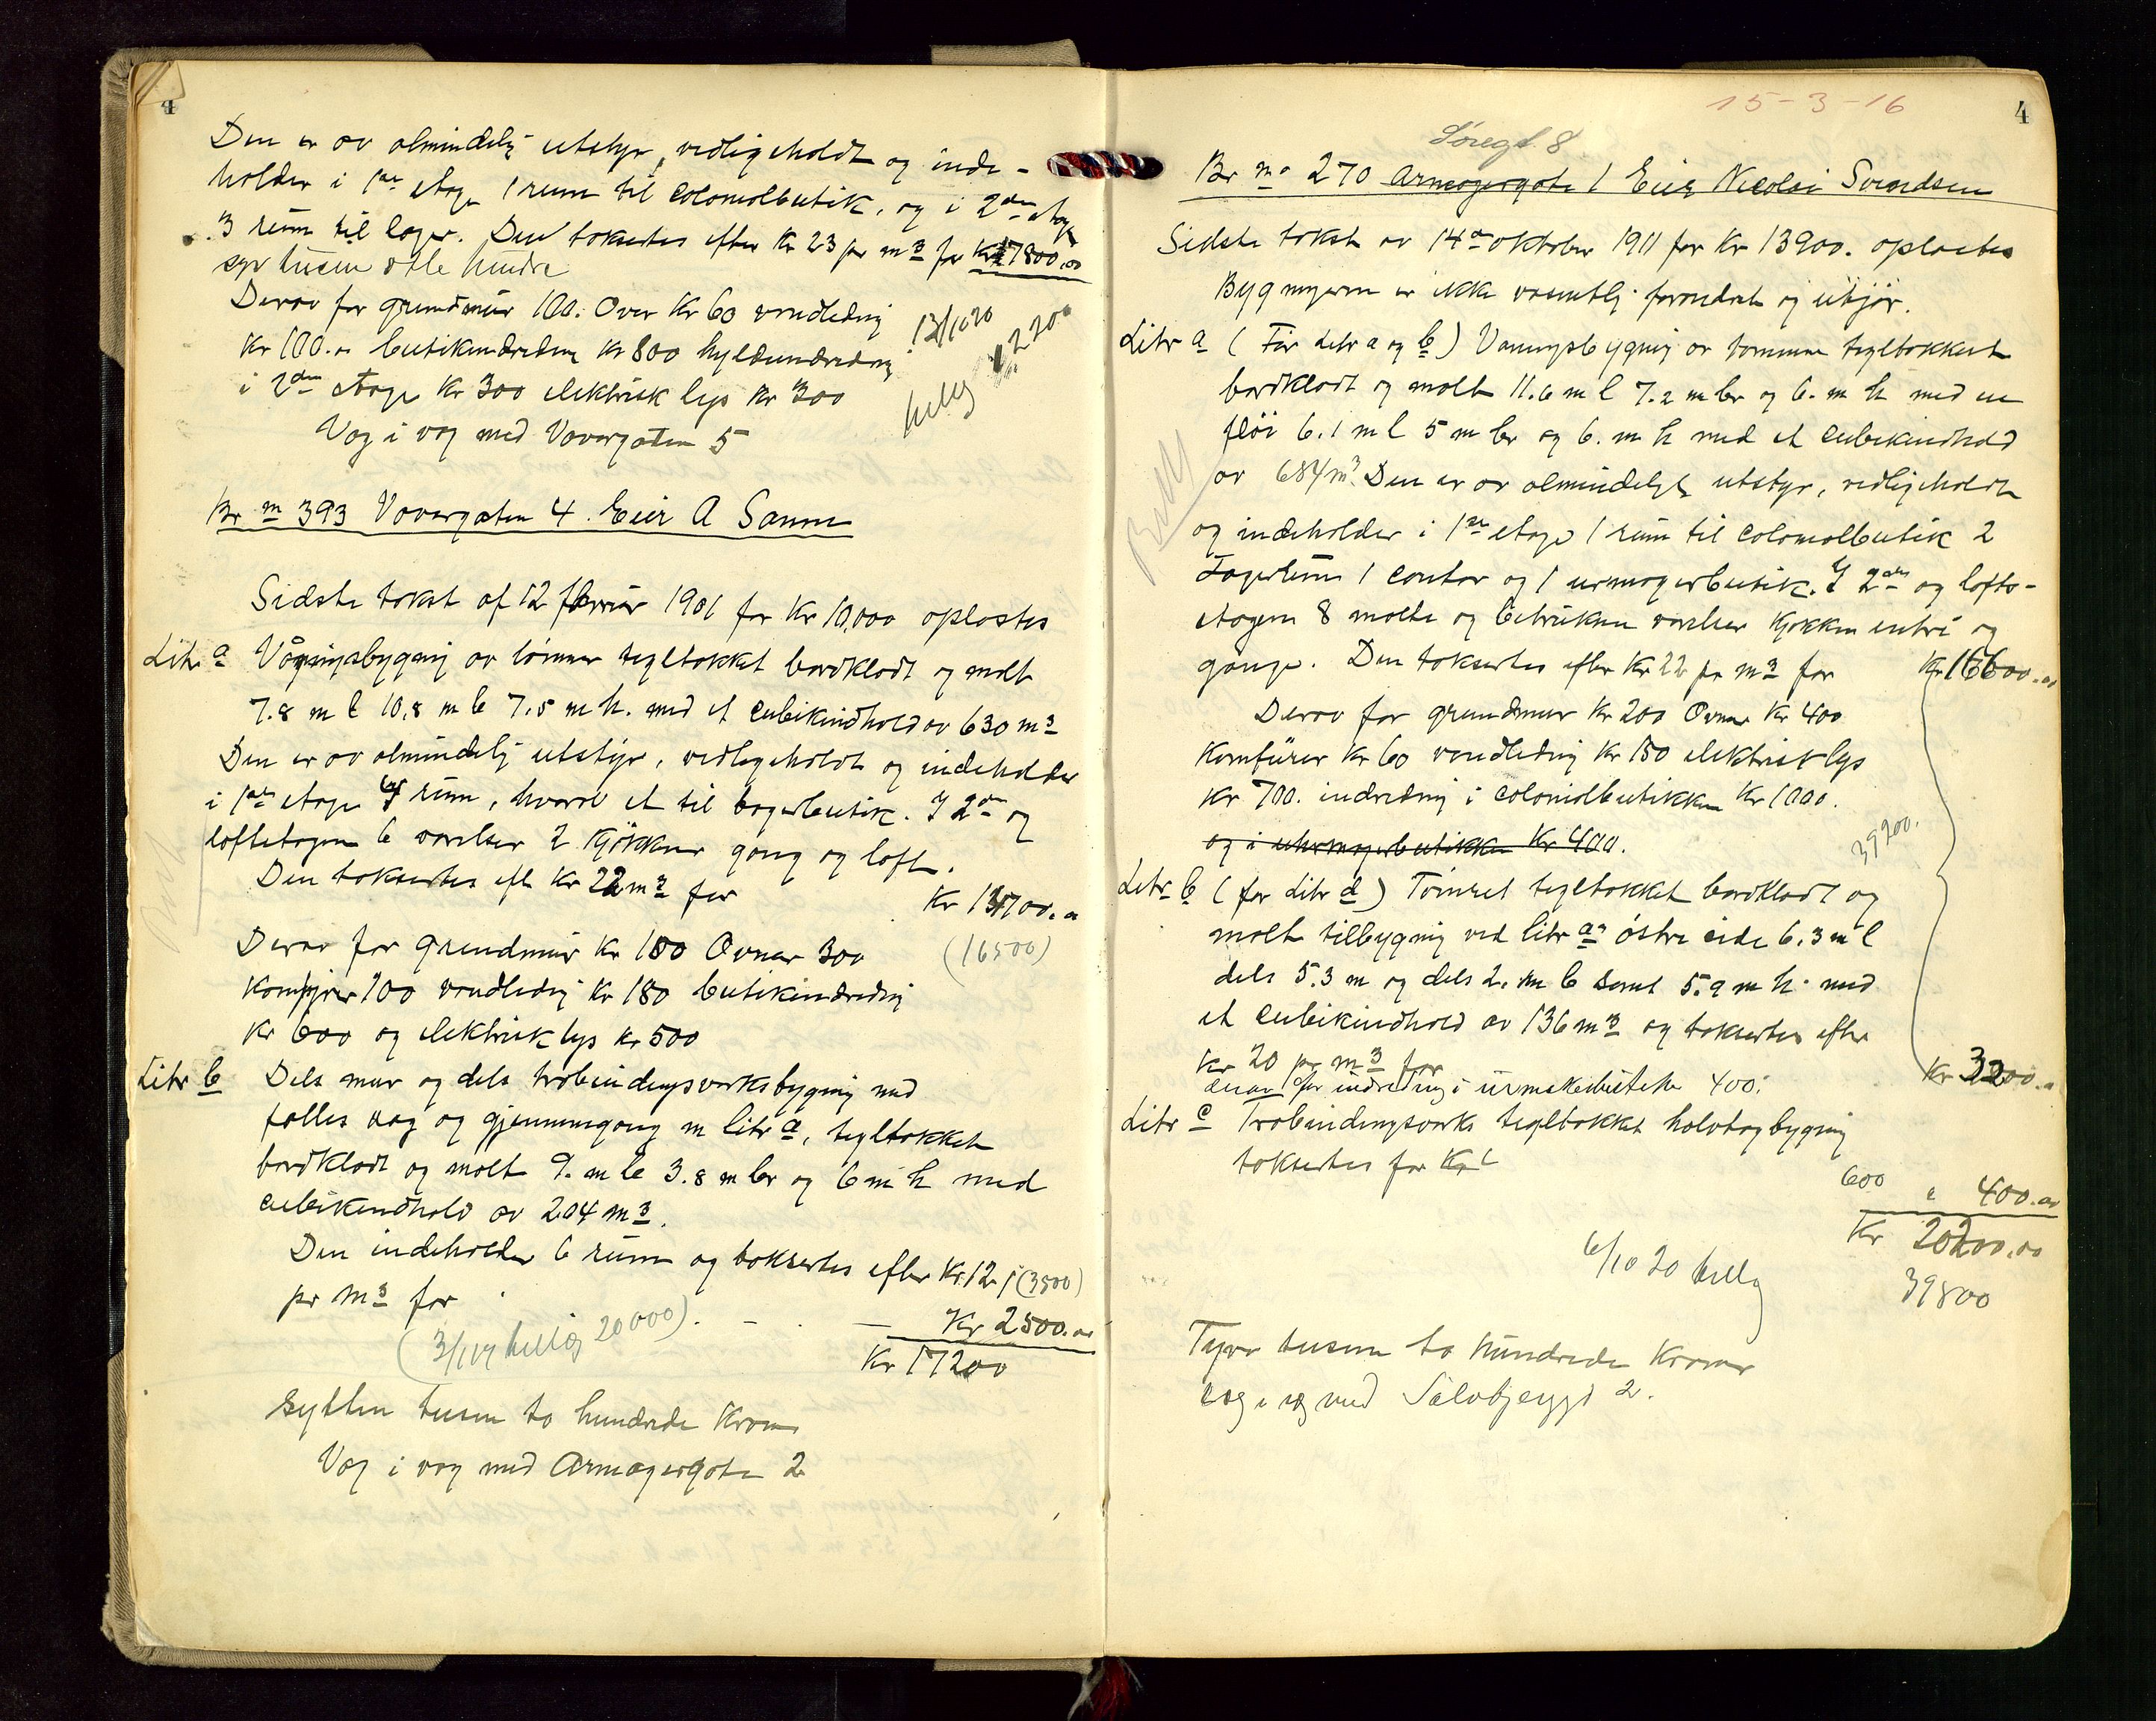 4
Den er av almindelig utstyr, vedligeholdt og inde-
holder i 1ste etage 1 rum til colonialbutik, og i 2den etage
3 rum til lager. Den takseres efter Kr 23 pr m3 for Kr 7800.00
syv tusen otte hundre
Derav for grundmur 100. Over Kr 60 vandledning
Kr 100.00 butikindredning Kr 800 hyldeindredning
i 2den etage Kr 300 elektrisk lys Kr 300
13/10 20
hellig 2200
Væg i væg med Vaavergaten 5
Br no 393 Vaavergaten 4. Eier A Sanne
Sidste takst af 12 februar 1901 for Kr 10,000 oplæstes
Litr a Vaaningsbygning av tømmer tegltækket bordklædt og malt
7.8 m l 10.8 m b 7.5 m h. med et cubikindhold av 630 m3
Den er av almindelig utstyr, vedligeholdt og indeholder
i 1ste etage 4 rum, hvorav et til bagerbutik. I 2den og
loftetagen 6 værelser 2 kjøkkner gang og loft.
Den takseres eft Kr 22 m3 for
Kr 14700.00
Derav for grundmur Kr 180 Ovner 300
(16500)
Komfyrer 100 vandledning Kr 180 butikindredning
Kr 600 og elektrisk lys Kr 500
Litr b Dels mur og dels trobindingsverksbygning med
fælles væg og gjennemgang m litr a, tegltækket
bordklædt og malt 9. m l 3.8 m br og 6 m h med
cubikindhold av 204 m3.
Den indeholder 6 rum og takseres efter Kr. 12 (3500)
pr m3 for
Kr 2500.00
(3/1 17 hellig 20000)
Kr 17200
sytten tusen to hundrede Kroner
Væg i væg med Armagergate 2
15-3-16
4
Søregt 8
Br no 270 Armagergate 1 Eier Nicolai Svendsen
Sidste takst av 14de oktober 1911 for Kr 13900. oplæstes
Bygningerne er ikke væsentlig forandret og utgjør.
Litr a (Før litr a og b) Vaaningsbygning av tømmer tegltækket
bordklædt og malt 11.6 m l 7.2 m br og 6. m h med en
fløi 6.1 m l 5 m br og 6. m h med et cubikindhold
av 684 m3. Den er av almindeligt utstyr, vedligeholdt
og indeholder i 1ste etage 1 rum til colonialbutik 2
Lagerrum 1 contor og 1 urmagerbutik. I 2den og lofts-
etagen 8 malte og betrukne værelser kjøkken entre og
gange. Den takseres efter Kr 22 pr m3 for Kr 16600.00
Derav for grundmur Kr 200 Ovner Kr 400
Komfurer Kr 60 vandledning Kr 150 elektrisk lys
Kr 700. indredning i colonialbutikken Kr 1000.
og i uhrmagerbutikken Kr 400.
39200.
Litr b (før litr d) Tømret tegltækket bordklædt og
malt tilbygning ved litr a's østre side 6.3 m l
dels 5.3 m og dels 2. m b samt 5.9 m h. med
et cubikindhold av 136 m3 og takseres efter
Kr 20 pr m3 for
Kr 3200.00
derav for indredning i urmakerbutikk 400.
Litr c Trobindingsverks tegltækket halvtagbygning
takseres for Kr
600 " 400.00
Kr 20200.00
6/10 20 hellig
39800
Tyve tusen to hundrede Kroner
væg i væg med Sølvbjerggt 2.